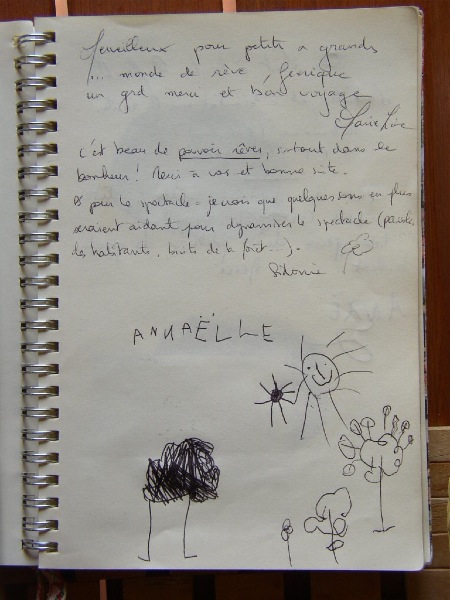 Merveilleux pour petits & grands
... monde de rêve, féerique
un grd merci et bon voyage
Marie Line
C'est beau de pouvoir rêver, surtout dans le
bonheur! Merci à vs et bonne suite.
pour le spectacle = je crois que quelques sons en plus
seraient aidant pour dynamiser le spectacle (paroles
des habitants, bruits de la forêt...).
Sidonie
ANNAËLLE